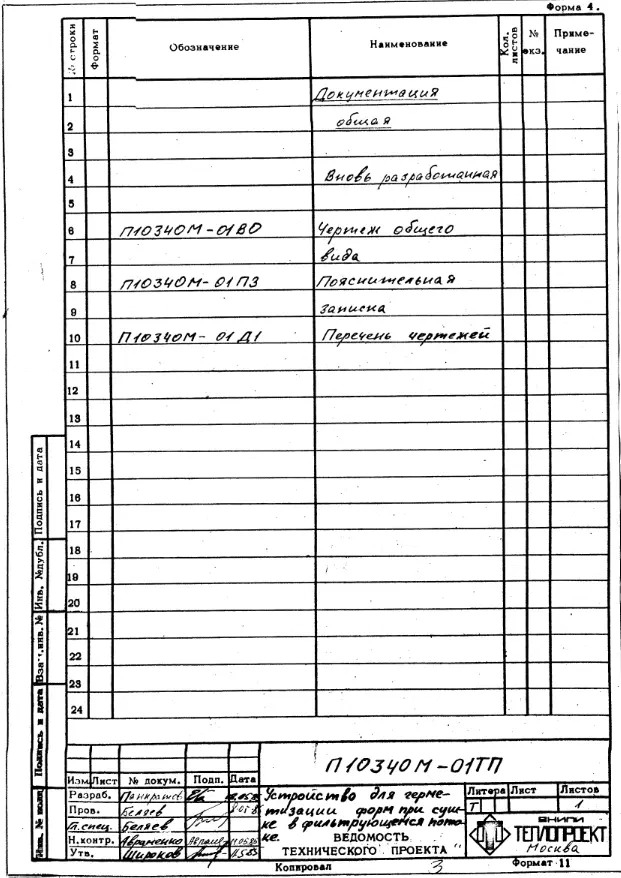 Форма 4.
№ строки
Формат
Обозначение
Наименование
Кол. листов
№ экз.
Приме-
чание
1 Документация
2 общая
3
4 Вновь разработанная
5
6 П10340М-01ВО Чертеж общего
7 вида
8 П10340М-01ПЗ Пояснительная
9 записка
10 П10340М-01Д1 Перечень чертежей
11
12
13
14
15
16
17
18
19
20
21
22
23
24
Подпись и дата
Инв. №дубл.
Взам.инв.№
Подпись и дата
Инв. № подл.
П10340М-01ТП
Изм Лист № докум. Подп. Дата
Разраб.
Пров. Беляев
Гл.спец. Беляев
Н.контр. Авраменко
Утв. Широков
Устройство для герме-
тизации форм при суш-
ке в фильтрующемся пото-
ке.
ВЕДОМОСТЬ
ТЕХНИЧЕСКОГО ПРОЕКТА
Литера Лист Листов
Т 1
ВНИПИ
ТЕПЛОПРОЕКТ
Москва
Копировал
3
Формат 11